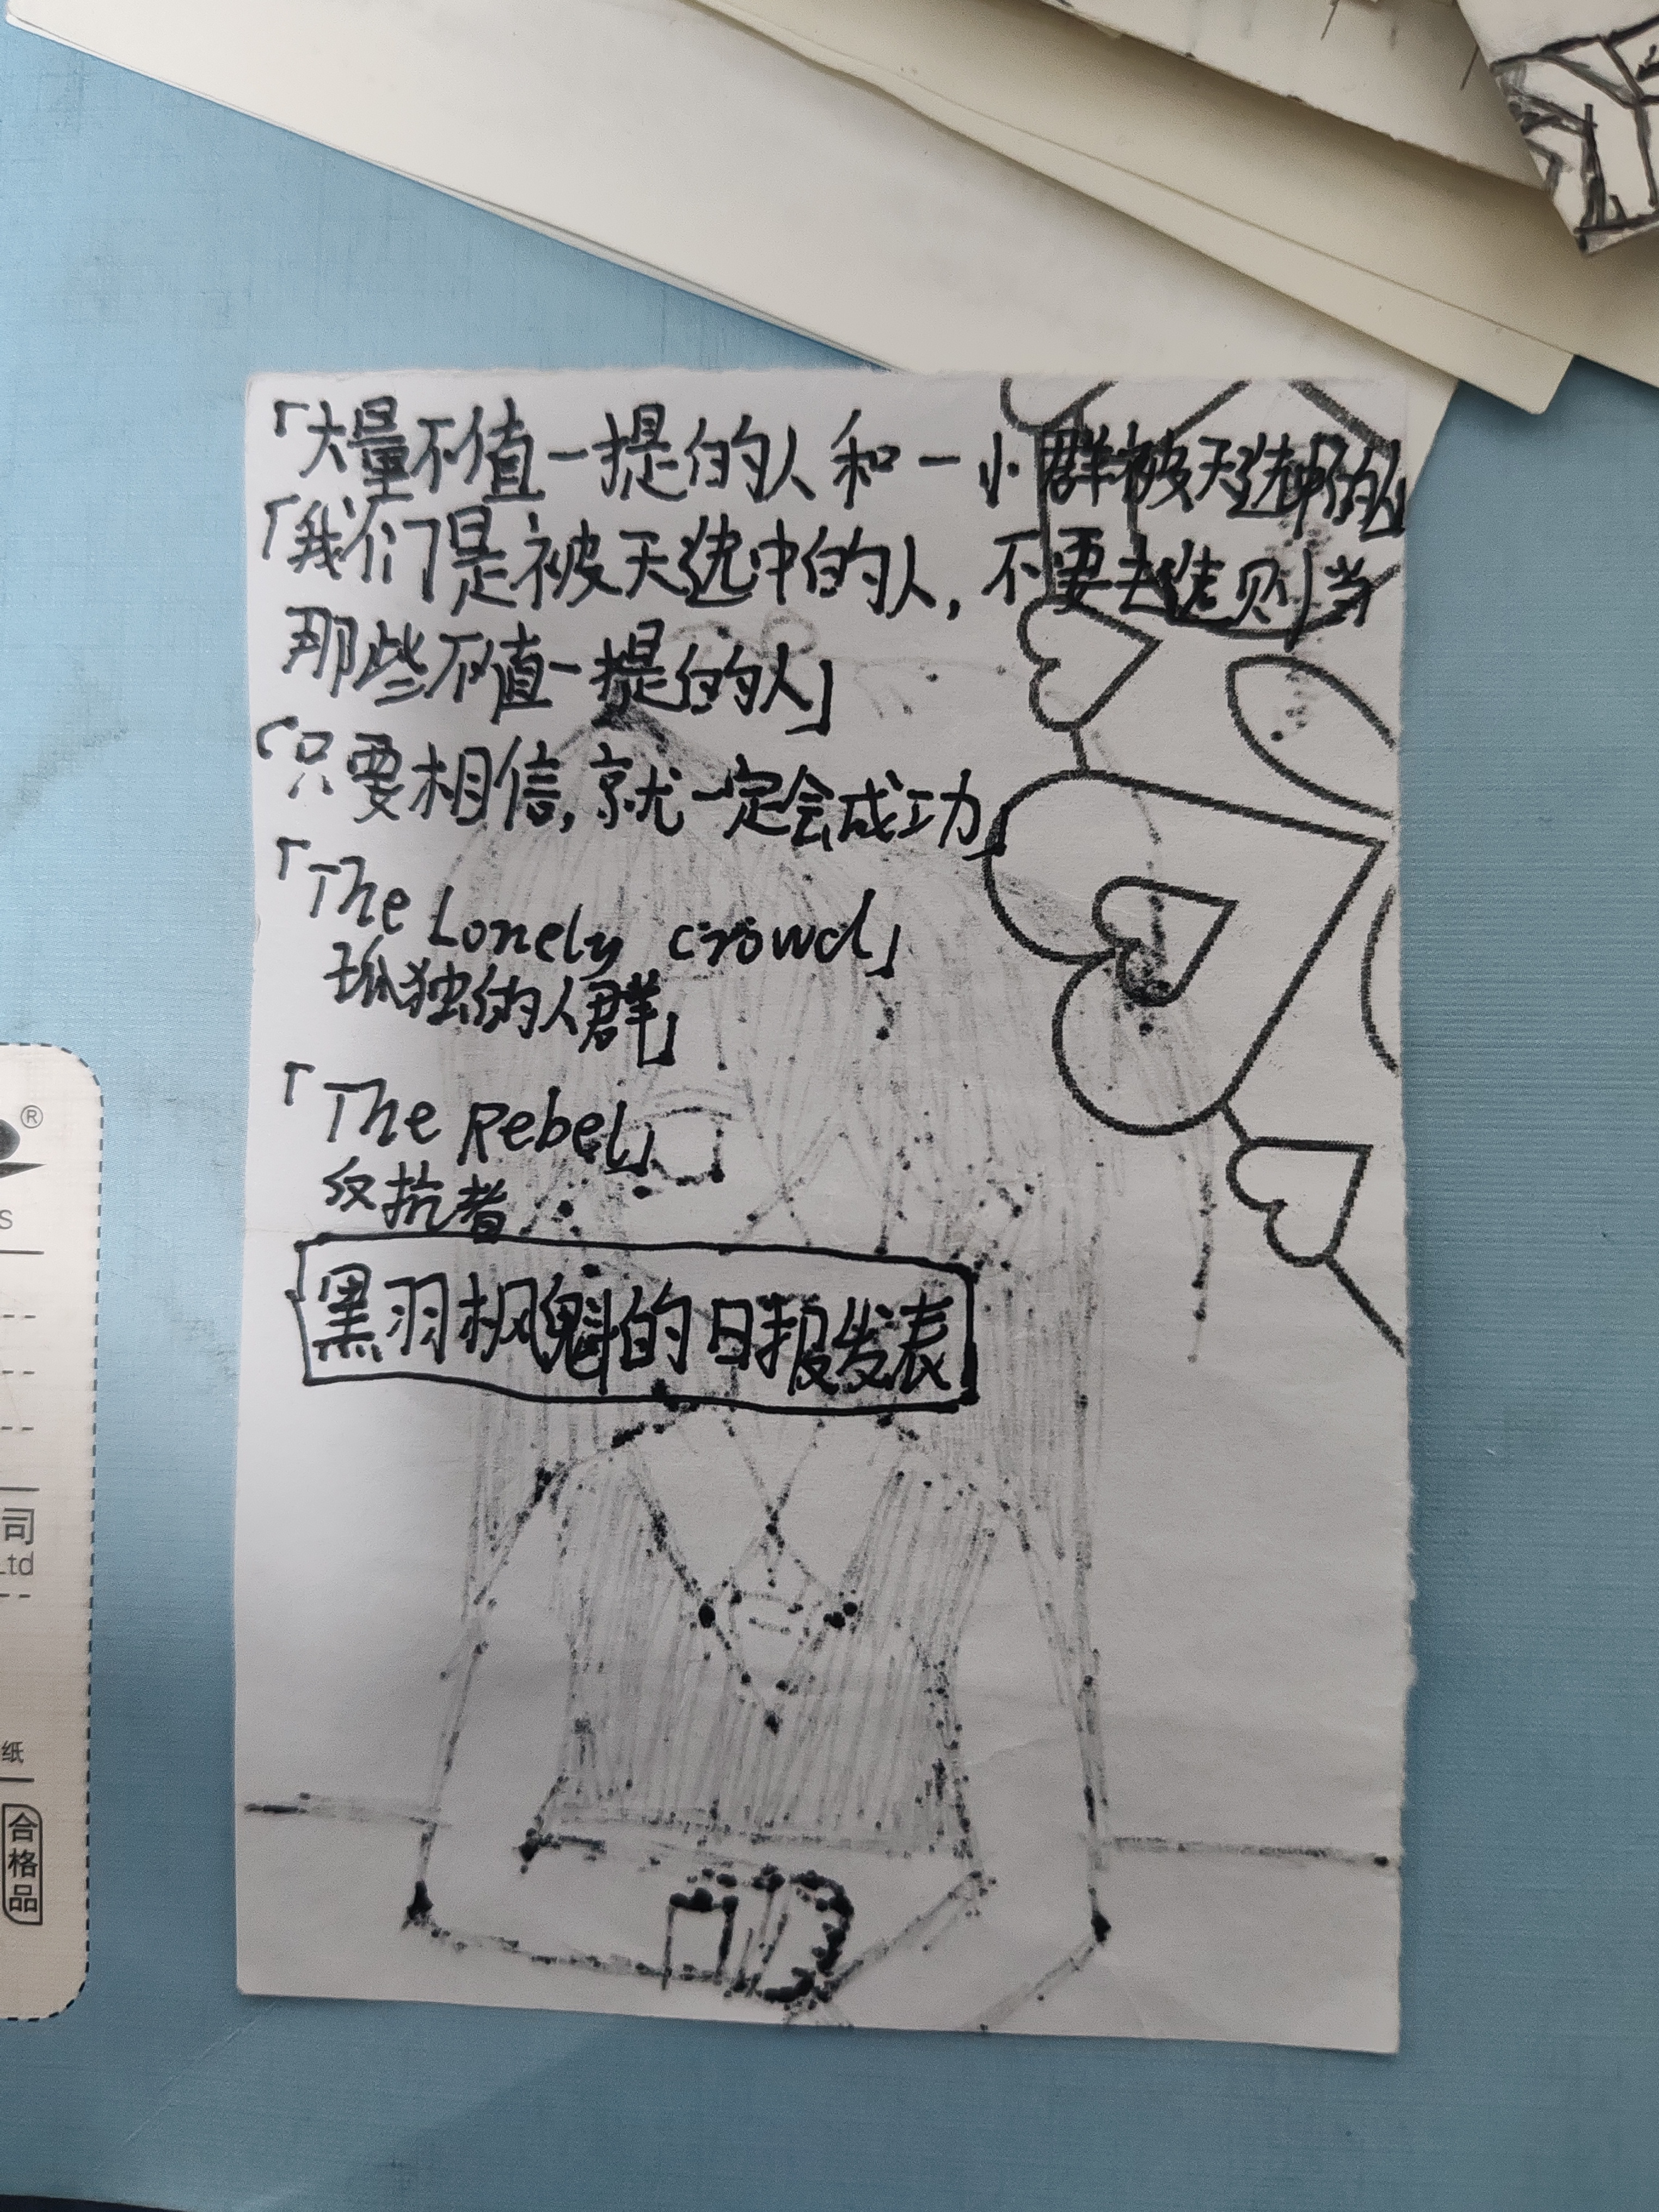 「大量不值一提的人和一小群被天选中的人
「我们是被天选中的人,不要去选则当
那些不值一提的人」
「只要相信,就一定会成功」
「The Lonely crowd」
孤独的人群」
「The Rebel」
反抗者
黑羽枫魁的日报发表
®
S
司
Ltd
纸
合格品